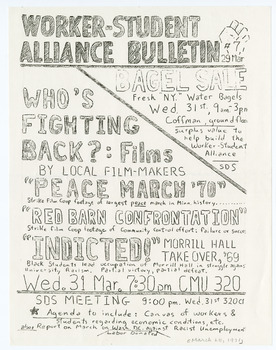 WORKER-STUDENT
ALLIANCE BULLETIN
29 Mar
BAGEL SALE
Fresh N.Y. "Water Bagels
Wed. 31st. 9am-3pm
Coffman ground floor
Surplus value to
help build the
Worker-Student
Alliance
SDS
WHO'S
FIGHTING
BACK?: Films
BY LOCAL FILM-MAKERS
"PEACE MARCH '70"
Strike Film Coop footage of largest peace march in Minn. history.
"RED BARN CONFRONTATION"
Strike Film Coop footage of Community control efforts: Failure or success
"INDICTED!" MORRILL HALL
TAKEOVER, '69
Black Students lead occupation of Morrill Hall in struggle against
University Racism. Partial victory, partial defeat.
Wed. 31 Mar. 7:30pm CMU 320
SDS MEETING 9:00 pm. Wed. 31st 320CU
Agenda to include: Canvas of workers &
students regarding economic conditions, etc.
plus Report on March on Wash. DC against Racist Unemployment
Labor Donated